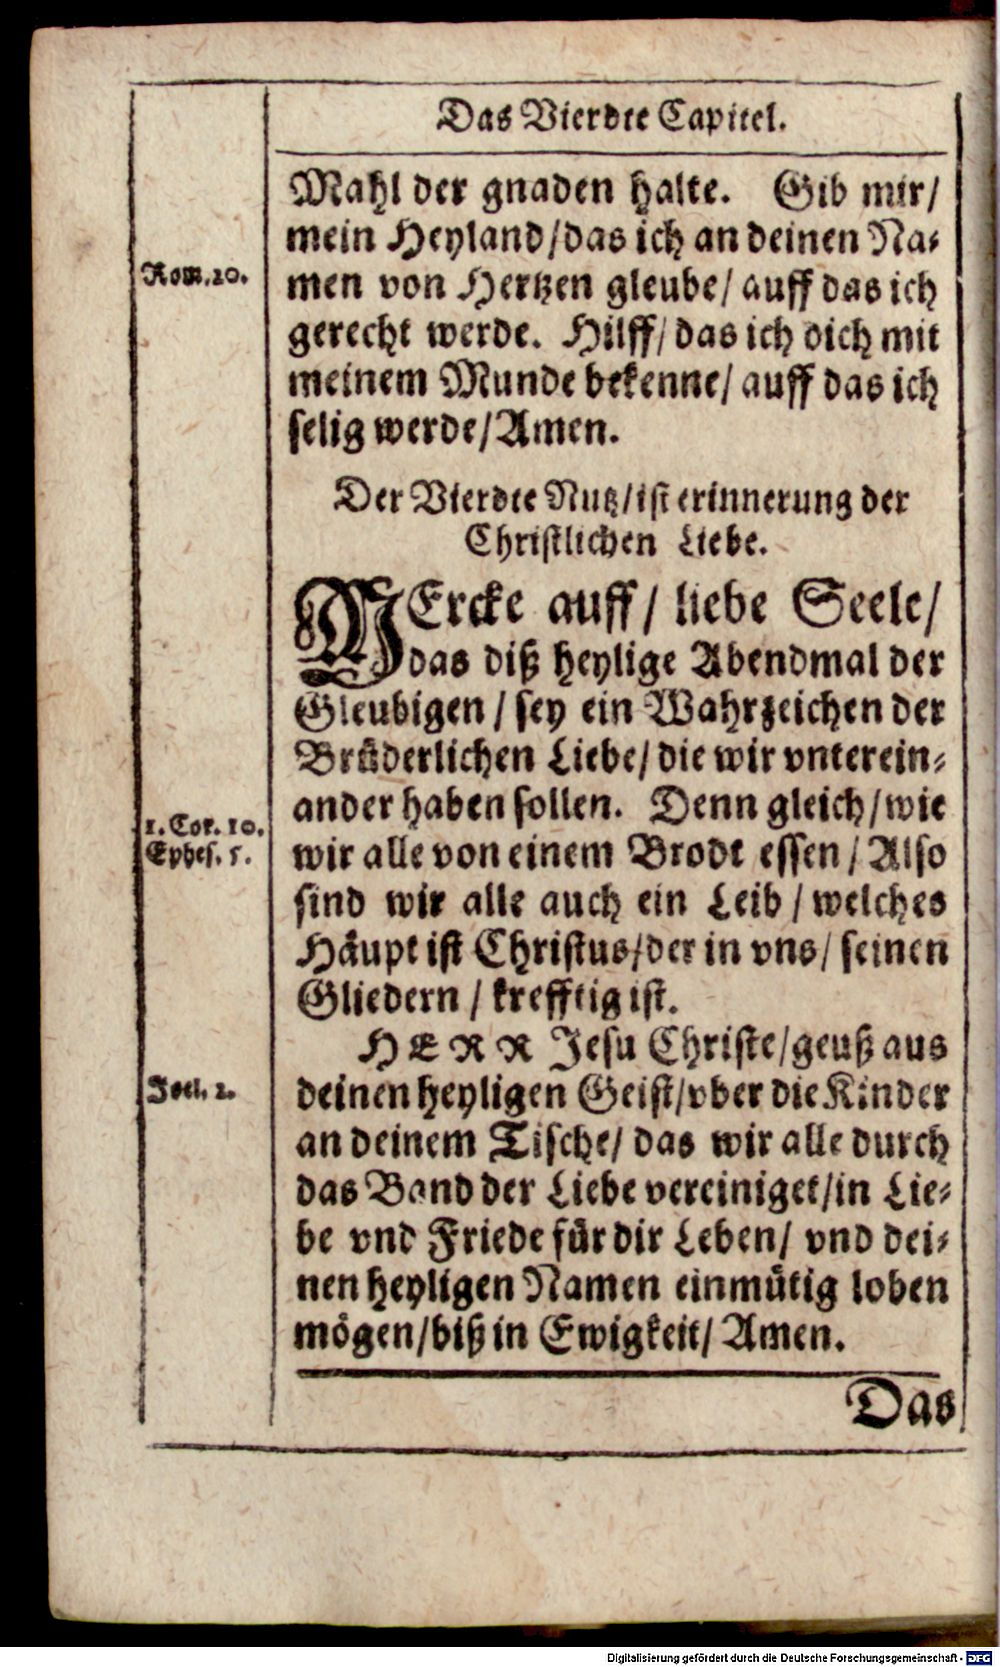 Das Vierdte Capitel.
Mahl der gnaden halte. Gib mir/
mein Heyland/das ich an deinen Na-
Rom. 10.
men von Hertzen gleube/ auff das ich
gerecht werde. Hilff/ das ich dich mit
meinem Munde bekenne/ auff das ich
selig werde/Amen.
Der Vierdte Nutz/ist erinnerung der
Christlichen Liebe.
MErcke auff/ liebe Seele/
das diß heylige Abendmal der
Gleubigen / sey ein Wahrzeichen der
Brüderlichen Liebe/ die wir vnterein-
ander haben sollen. Denn gleich/wie
1. Cor. 10.
Ephes. 5.
wir alle von einem Brodt essen / Also
sind wir alle auch ein Leib / welches
Häupt ist Christus/der in vns/ seinen
Gliedern / krefftig ist.
HERR Jesu Christe/geuß aus
Joel. 2.
deinen heyligen Geist/vber die Kinder
an deinem Tische/ das wir alle durch
das Band der Liebe vereiniget/in Lie-
be vnd Friede für dir Leben/ vnd dei-
nen heyligen Namen einmütig loben
mögen/biß in Ewigkeit/ Amen.
Das
Digitalisierung gefördert durch die Deutsche Forschungsgemeinschaft - DFG